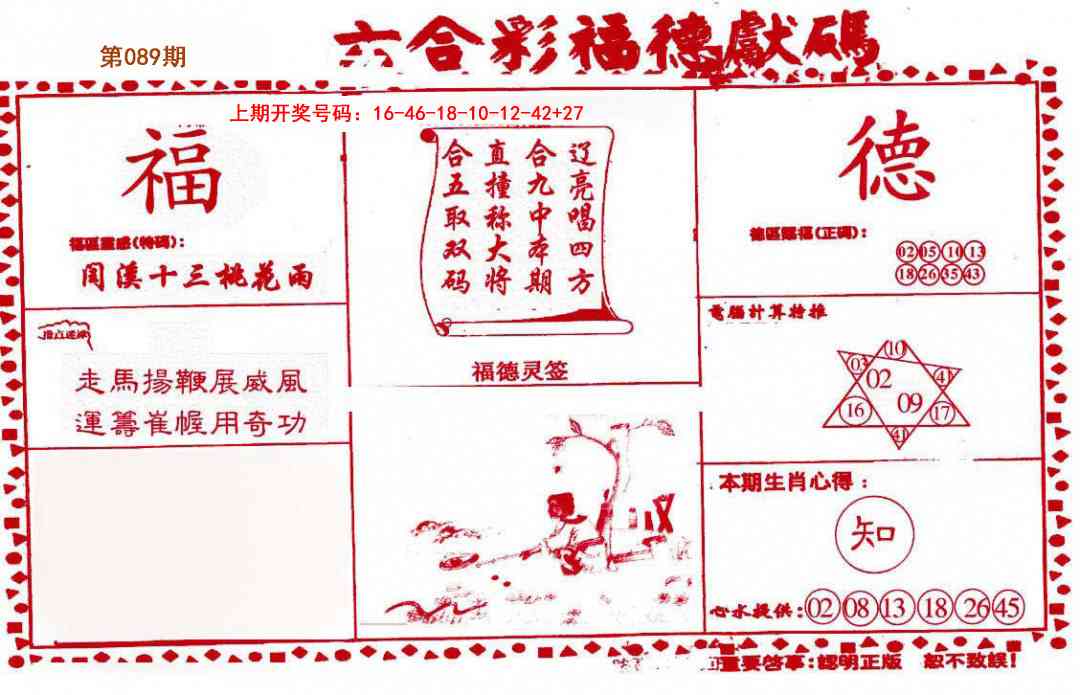 第089期
六合彩福德獻碼
上期开奖号码：16-46-18-10-12-42+27
福
福區靈感(特碼)：
閏溪十三桃花雨
走馬揚鞭展威風
運籌崔幄用奇功
辽亮唱四方
合九中本期
直撞称大将
合五取双码
福德灵签
德
德區賜福(正碼)：
02 05 10 13
18 26 35 43
電腦計算特推
10
03 02 41
16 09 17
41
本期生肖心得：
知
心水提供：02 08 13 18 26 45
重要啓事：認明正版 恕不致誤！